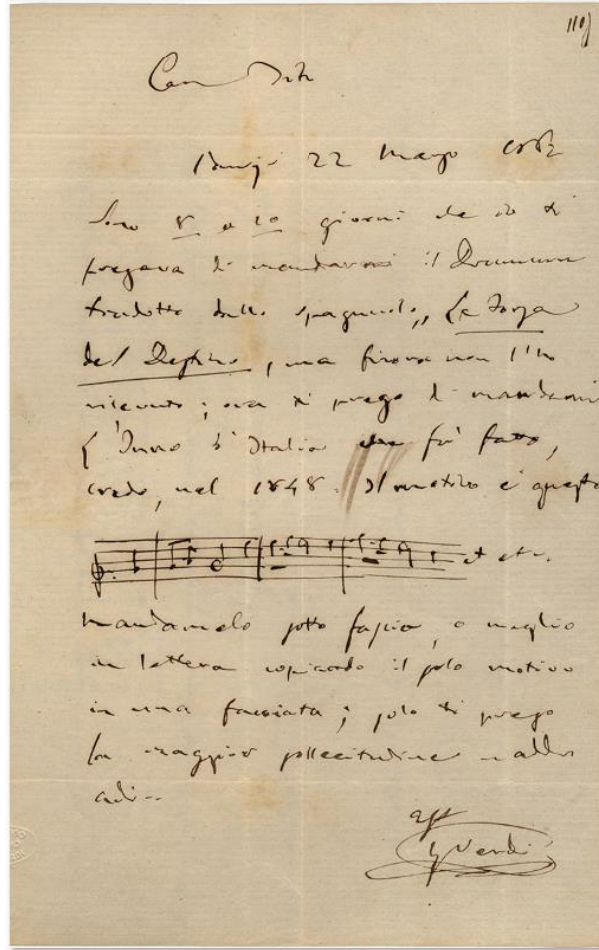 Caro Tito
Parigi 22 Marzo 1862
Sono 8 o 10 giorni che io ti
pregava di mandarmi il Dramma
tradotto dallo spagnuolo „ La Forza
del Destino, ma finora non l'ho
ricevuto; ora ti prego di mandarmi
L'Inno d'Italia che fu fatto,
credo, nel 1848. Il motivo è questo
et etc.
Mandamelo sotto fascia, o meglio
in lettera copiando il solo motivo
in una facciata; solo ti prego
la maggior sollecitudine
adi..
aff
G Verdi